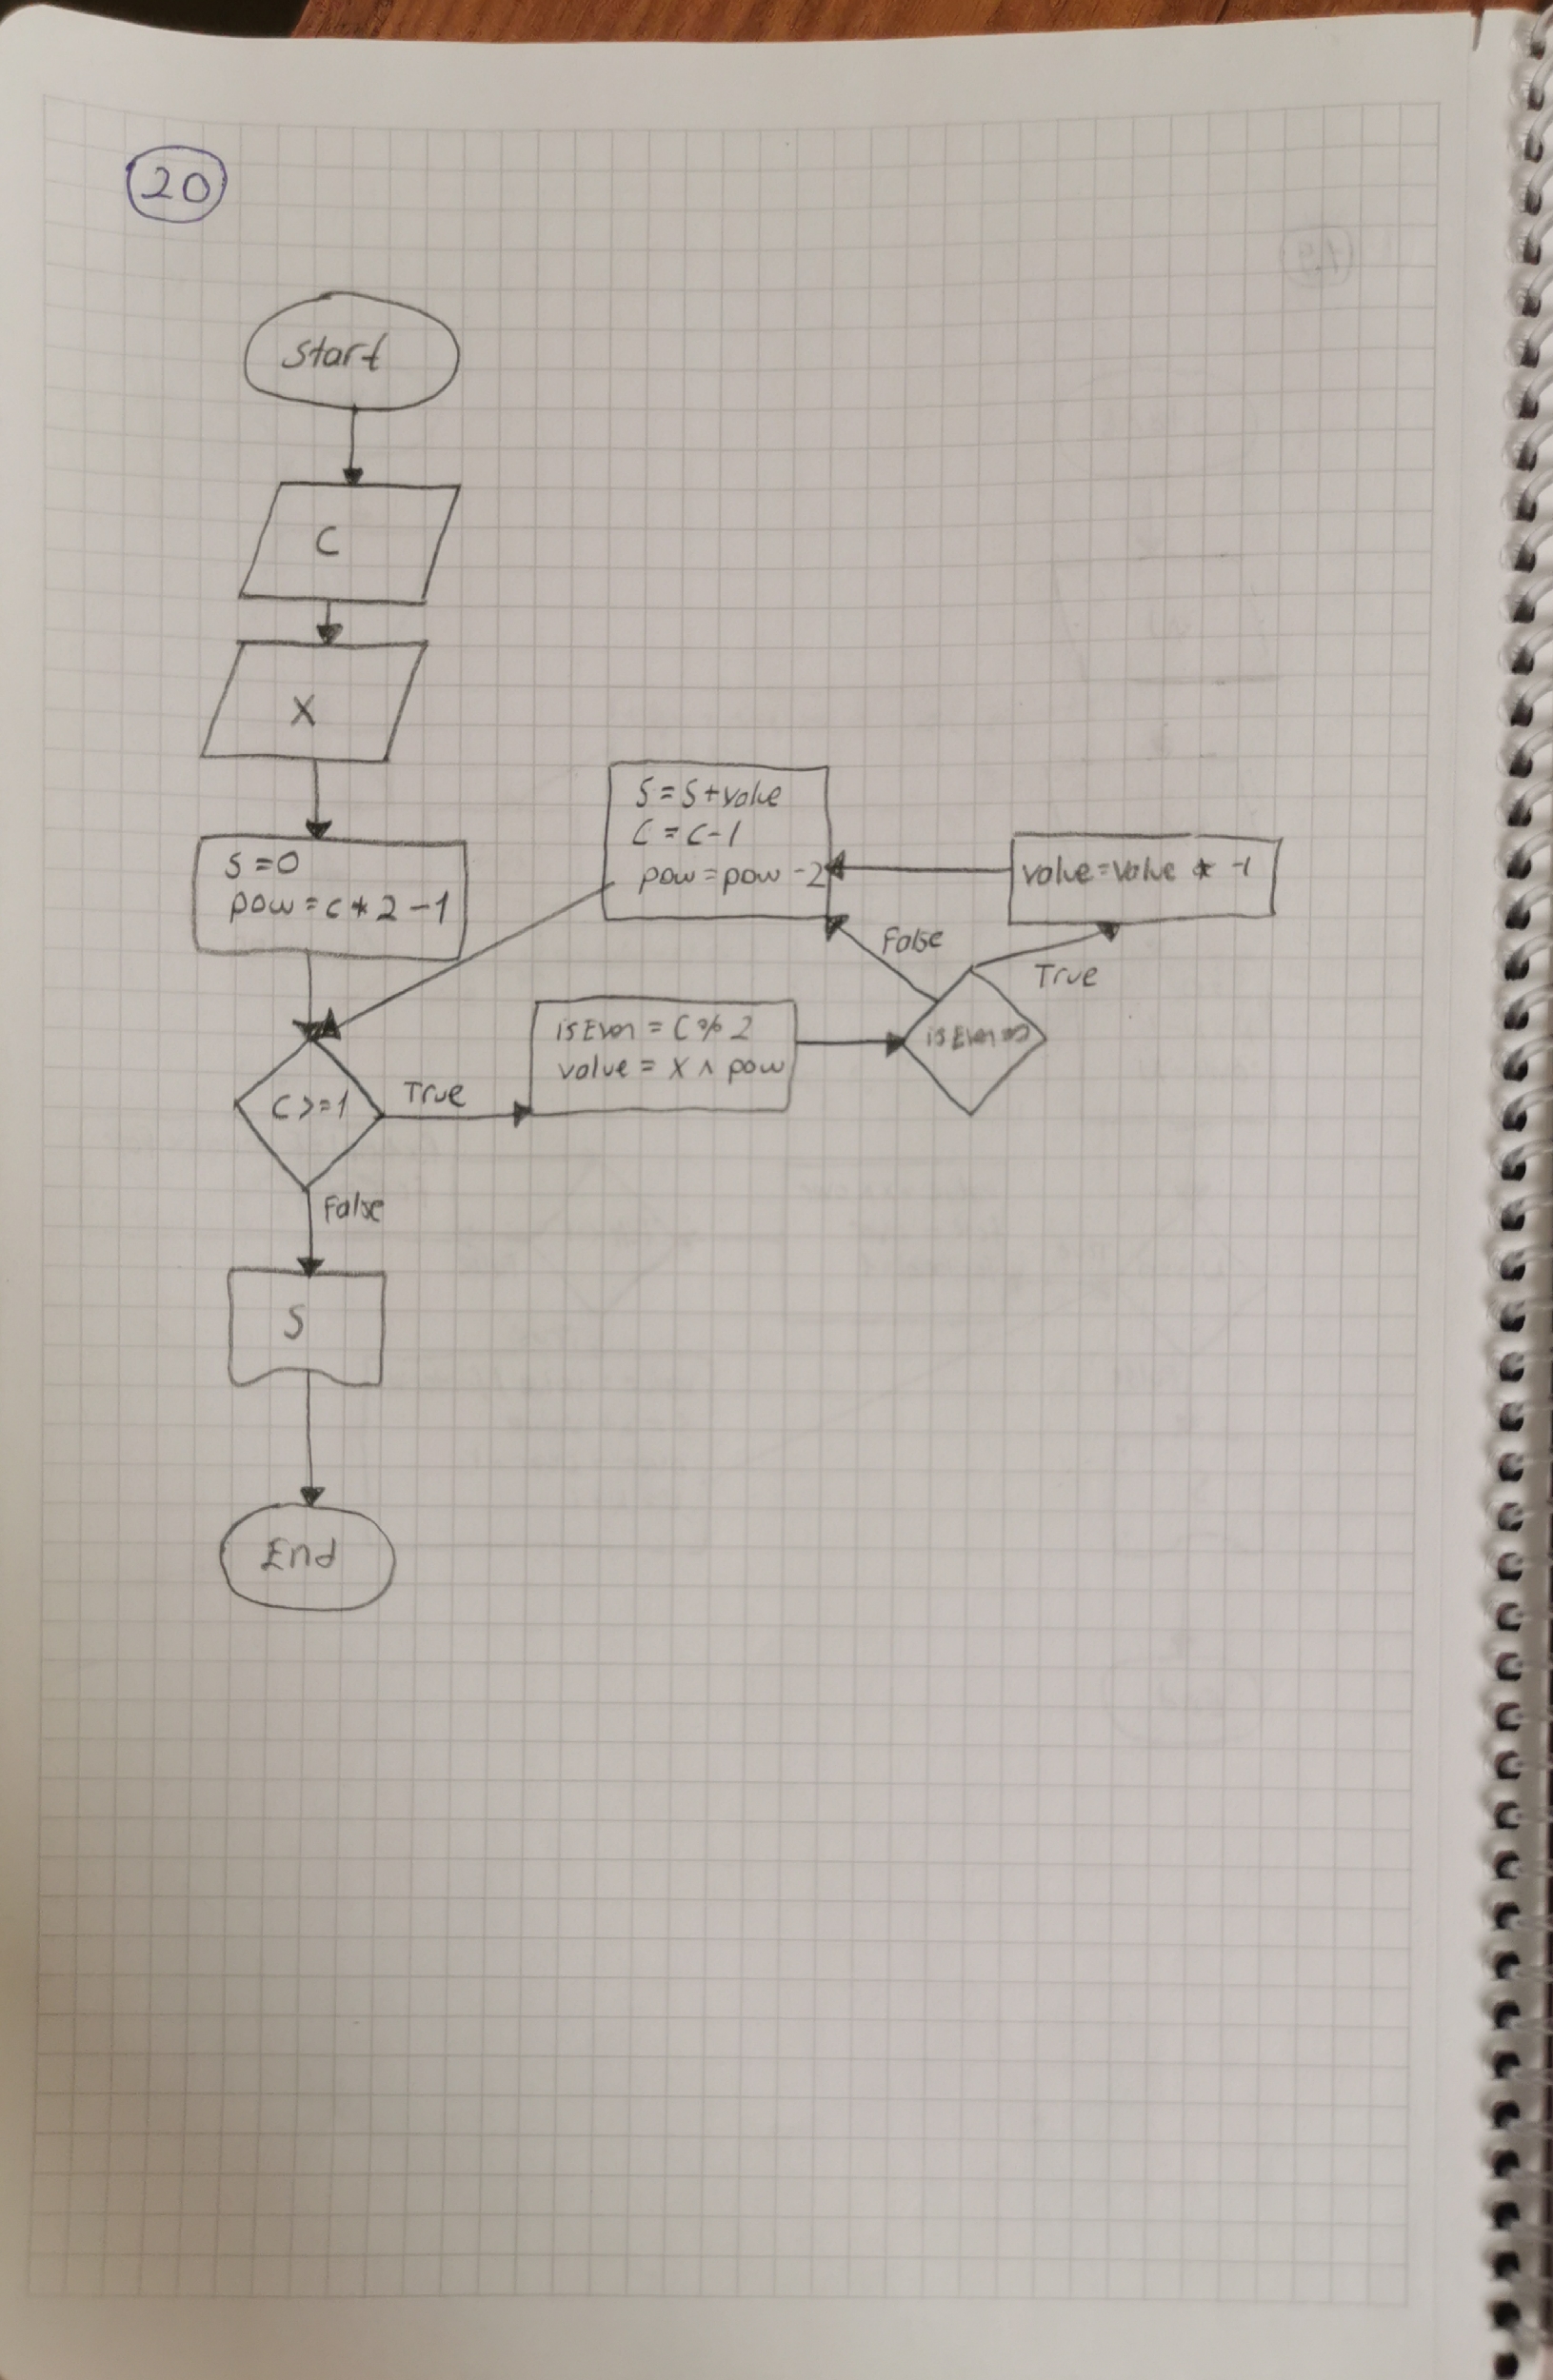 20
Start
C
X
S=0
pow=c*2-1
C>=1
True
isEven = C%2
value = X ^ pow
isEven=0
True
value=value * -1
False
S=S+value
C=C-1
pow=pow-2
False
S
End